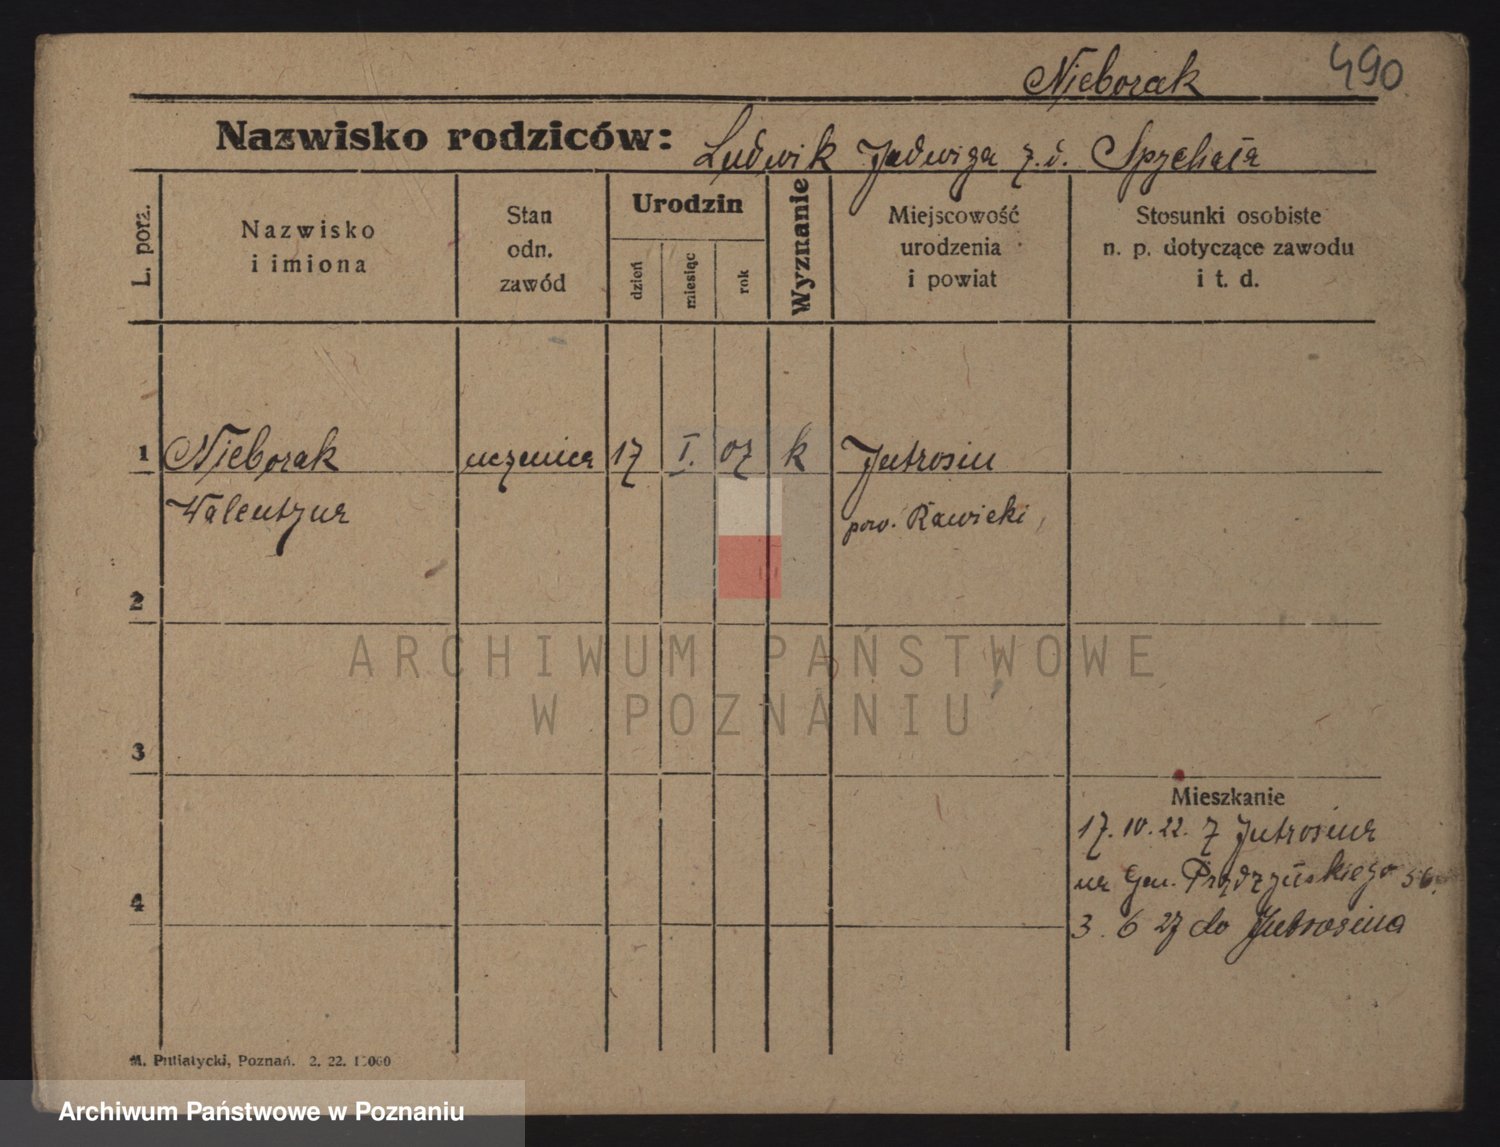 Nieborak
490
Nazwisko rodziców: Ludwik Jadwiga z.d. Spychała
L. porz.
Nazwisko
i imiona
Stan
odn.
zawód
Urodzin
dzień
miesiąc
rok
Wyznanie
Miejscowość
urodzenia
i powiat
Stosunki osobiste
n. p. dotyczące zawodu
i t. d.
1 Nieborak uczenica 17 I. 07 k Jutrosin
Walentyna pow. Rawicki
2
ARCHIWUM PAŃSTWOWE
W POZNANIU
3
Mieszkanie
17.10.22. z Jutrosina
na Gen. Prądzyńskiego 56.
4
3. 6 27 do Jutrosina
M. Putiatycki, Poznań. 2. 22.
Archiwum Państwowe w Poznaniu